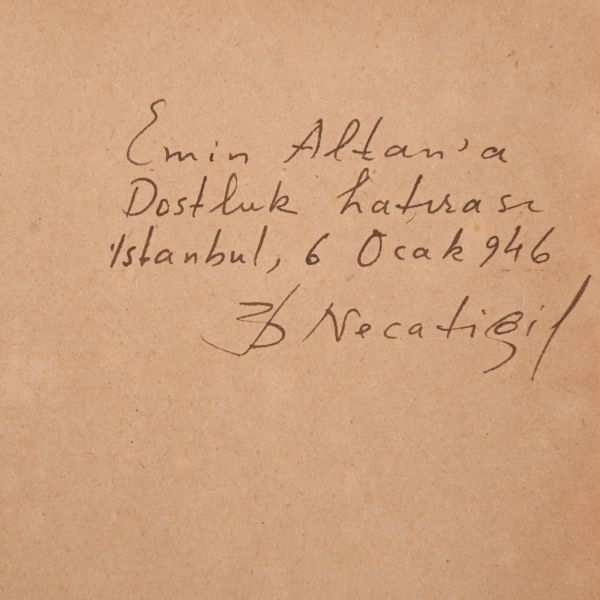 Emin Altan'a
Dostluk hatırası
İstanbul, 6 Ocak 946
B Necatigil